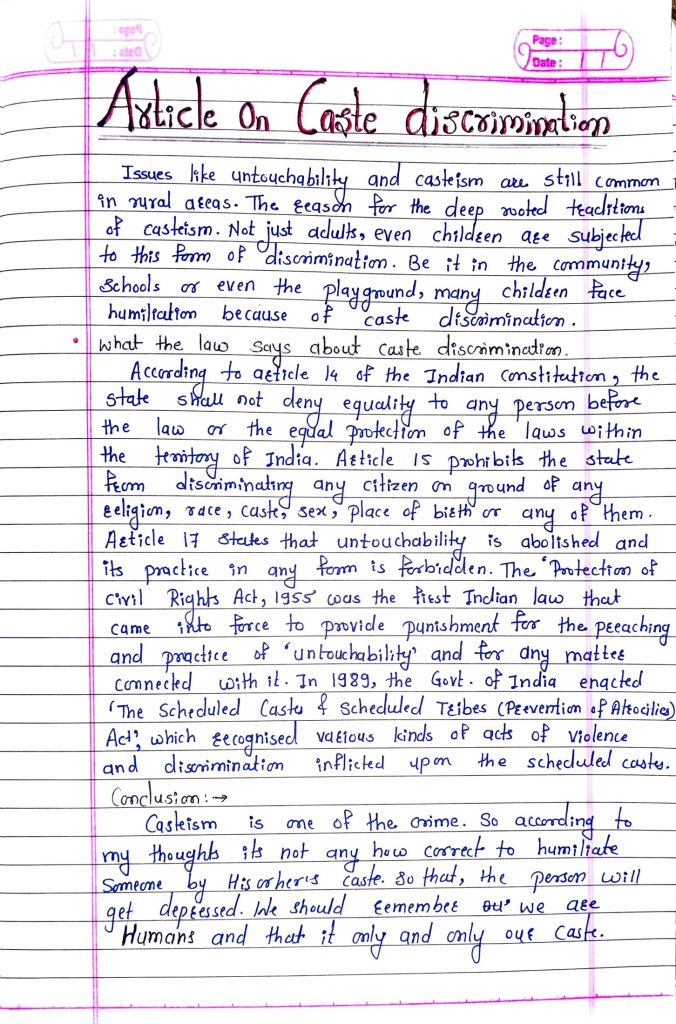 Page :
Date :
Article on Caste discrimination
Issues like untouchability and casteism are still common
in rural areas. The reason for the deep rooted traditions
of casteism. Not just adults, even children are subjected
to this form of discrimination. Be it in the community,
schools or even the playground, many children face
humiliation because of caste discrimination.
• what the law says about caste discrimination.
According to article 14 of the Indian constitution, the
state shall not deny equality to any person before
the law or the equal protection of the laws within
the territory of India. Article 15 prohibits the state
from discriminating any citizen on ground of any
religion, race, caste, sex, place of birth or any of them.
Article 17 states that untouchability is abolished and
its practice in any form is forbidden. The 'Protection of
civil Rights Act, 1955 was the first Indian law that
came into force to provide punishment for the preaching
and practice of 'untouchability' and for any matter
connected with it. In 1989, the Govt. of India enacted
'The Scheduled Castes & Scheduled Tribes (Prevention of Atrocities)
Act', which recognised various kinds of acts of violence
and discrimination inflicted upon the scheduled castes.
Conclusion :→
Casteism is one of the crime. So according to
my thoughts its not any how correct to humiliate
Someone by His or her's caste. So that, the person will
get depressed. We should remember we are
Humans and that it only and only our Caste.